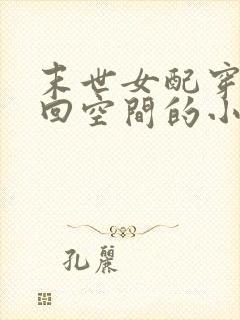 末世女配穿
回空間的小
孔麗